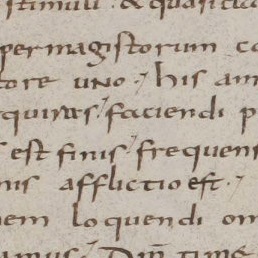 stimuli · & quasi cla
per magistorum co
tore uno · his am
quires faciendi p
est finis frequens
nis afflictio est ·
nem loquendi om